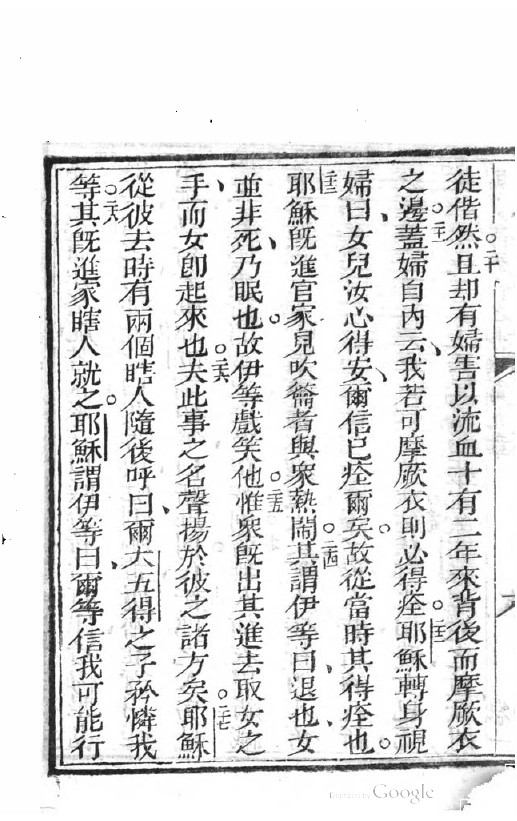 徒偕然。二十且却有婦害以流血十有二年來背後而摩厥衣
之邊。二一蓋婦自內云、我若可摩厥衣則必得痊。二二耶穌轉身視
婦曰、女兒汝心得安、爾信已痊爾矣。故從當時其得痊也。
二三耶穌既進官家見吹籥者與衆熱鬧。二四其謂伊等曰、退也、女
並非死、乃眠也。故伊等戲笑他。二五惟衆既出其進去取女之
手、而女卽起來也。二六夫此事之名聲揚於彼之諸方矣。二七耶穌
從彼去時有兩個瞎人隨後呼曰、爾大五得之子矜憐我
等。二八其既進家瞎人就之。耶穌謂伊等曰、爾等信我可能行
Google